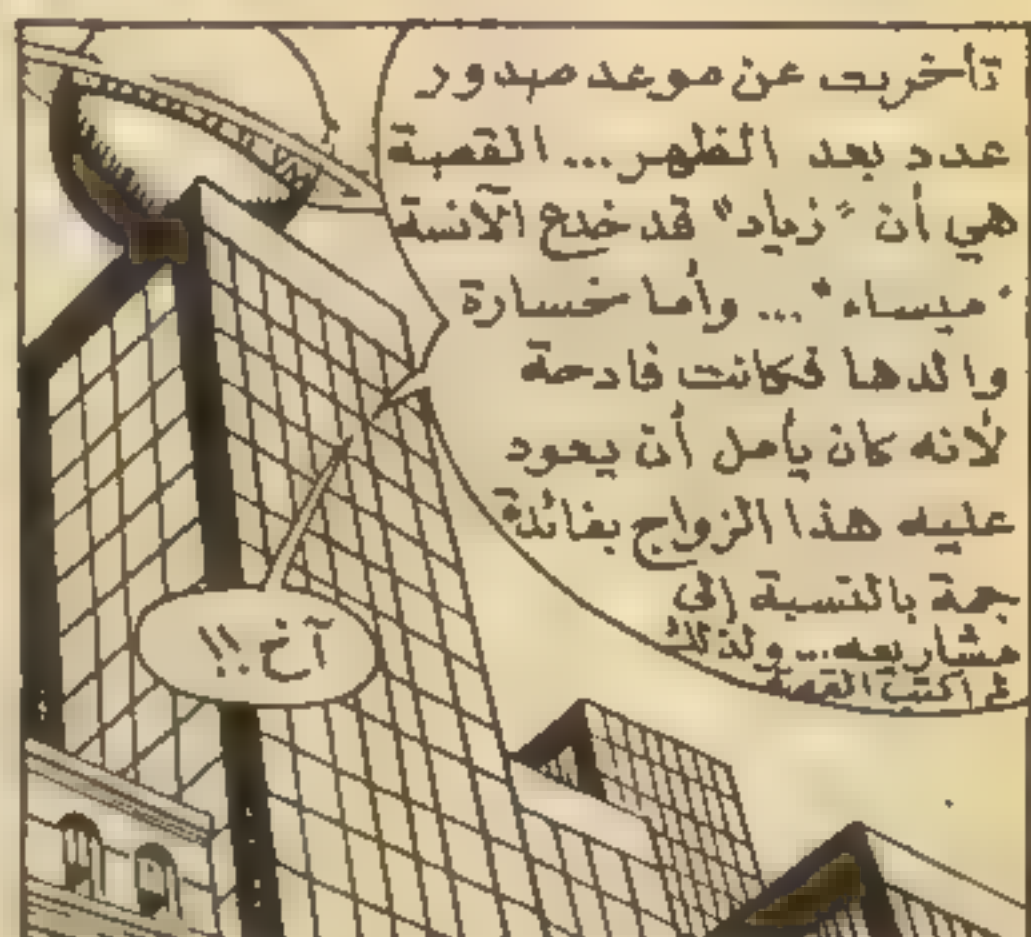 تأخرت عن موعد صدور
عدد بعد الظهر... القصة
هي أن "زياد" قد خدع الآنسة
"ميساء"... وأما خسارة
والدها فكانت فادحة
لأنه كان يأمل أن يعود
عليه هذا الزواج بفائدة
جمة بالنسبة إلى
مشاريعه... ولذلك
لم اكتب القصة
آخ!!